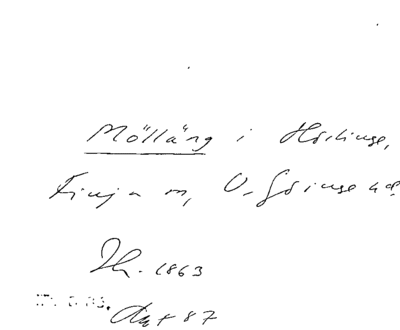 Mölläng i Hörlinge,
Finja sn, V. Göinge hd.
Th. 1863
Akt 87